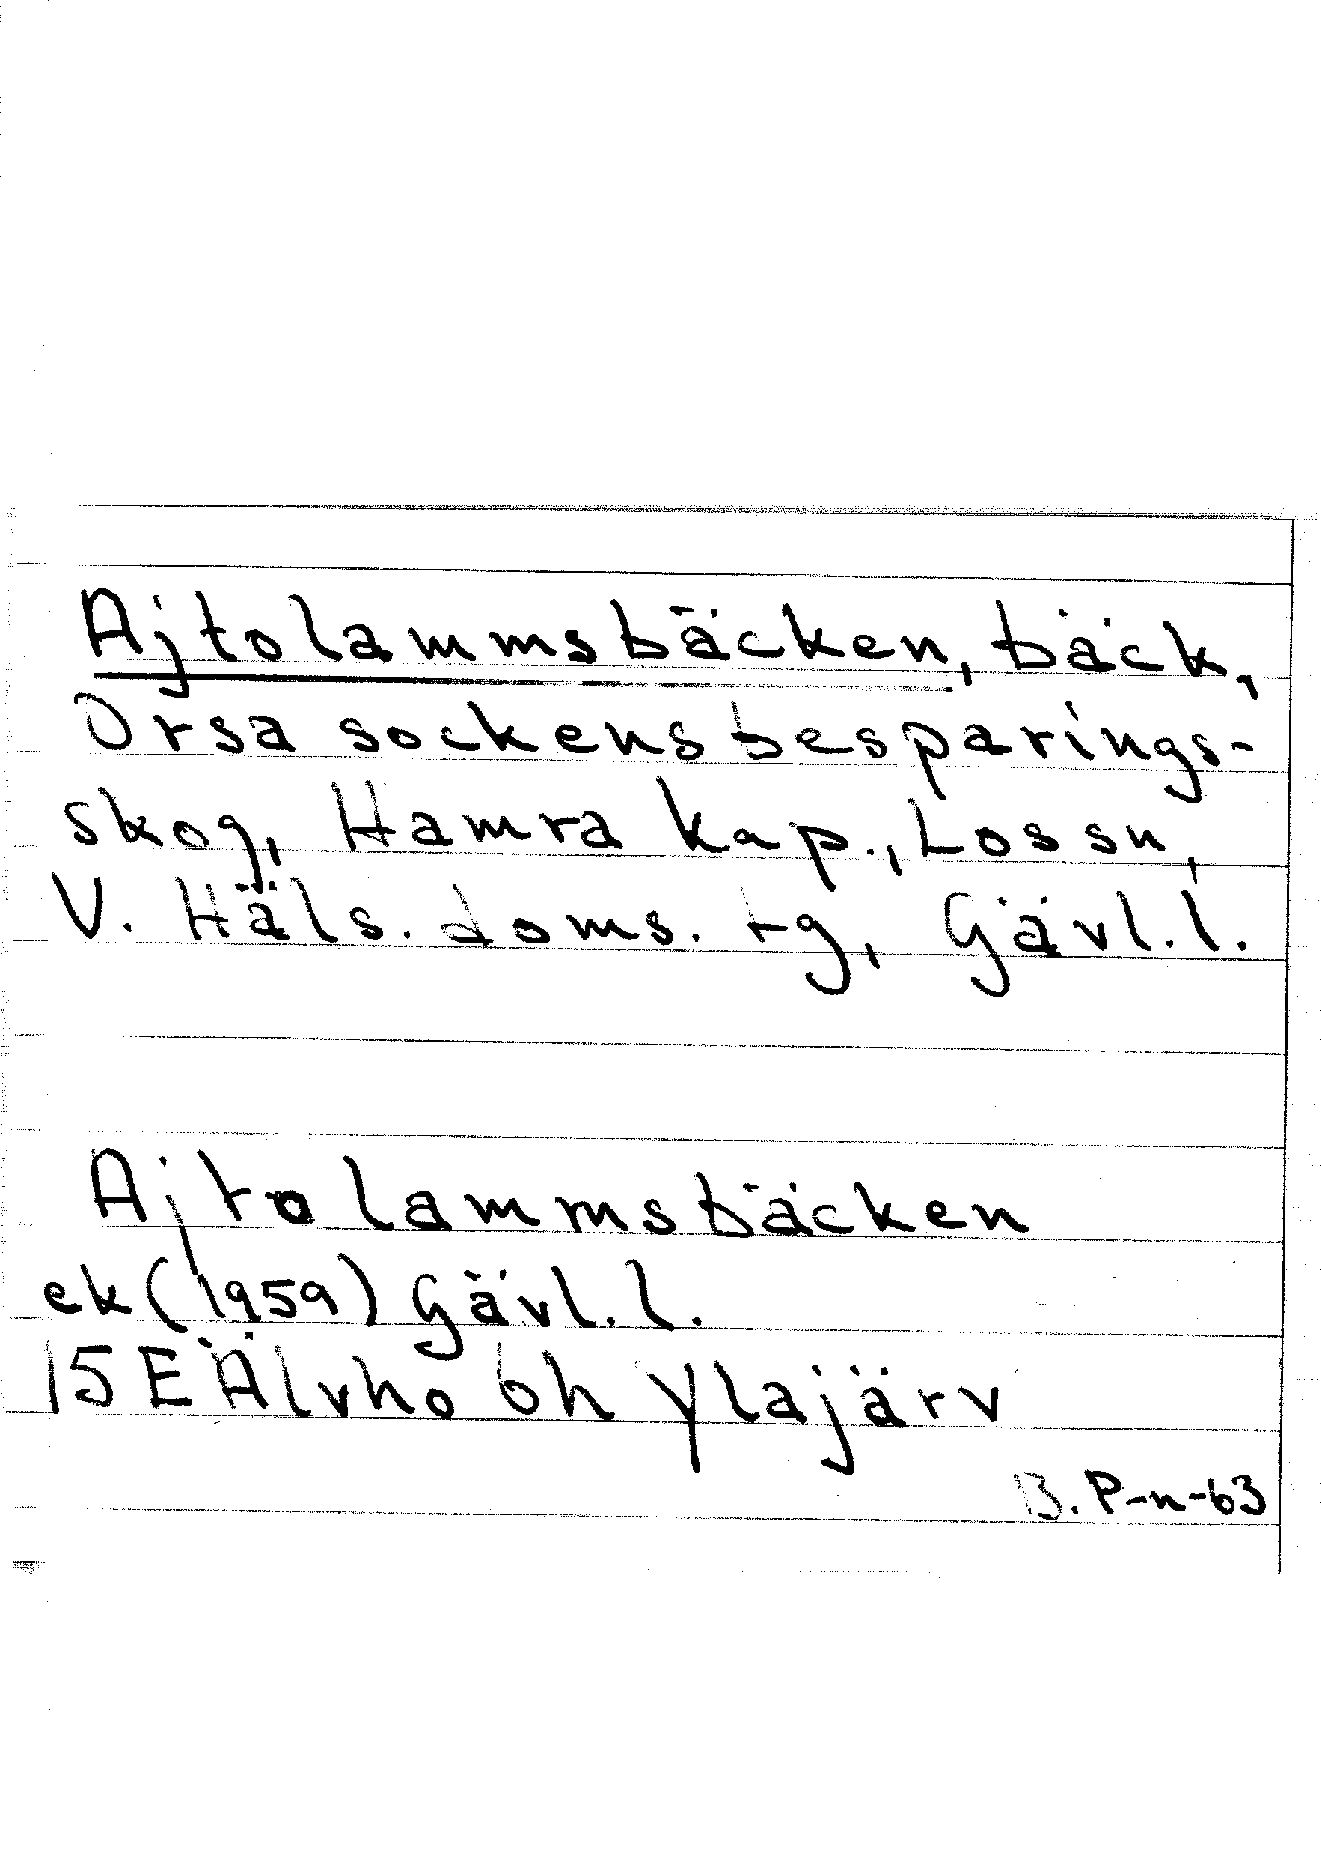 Ajtolammsbäcken, bäck,
Orsa sockens besparings-
skog, Hamra kap., Los sn,
V. Häls. doms. tg, Gävl. l.
Ajtolammsbäcken
ek (1959) Gävl. l.
15 E Älvho 6h Ylajärv
B. P-n-63